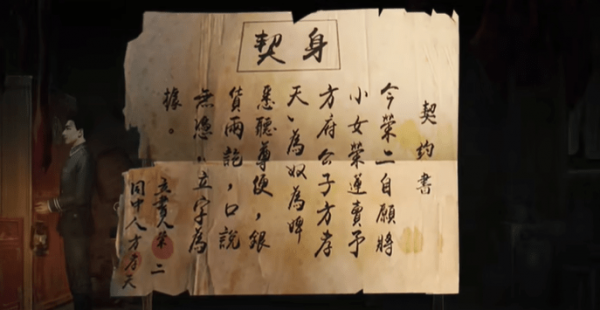 身契
契約書
今榮二自願將
小女榮蓮賣予
方府公子方孝
天，為奴為婢
悉聽尊便，銀
貨兩訖，口說
無憑，立字為
據。
立書人榮二
同中人方孝天